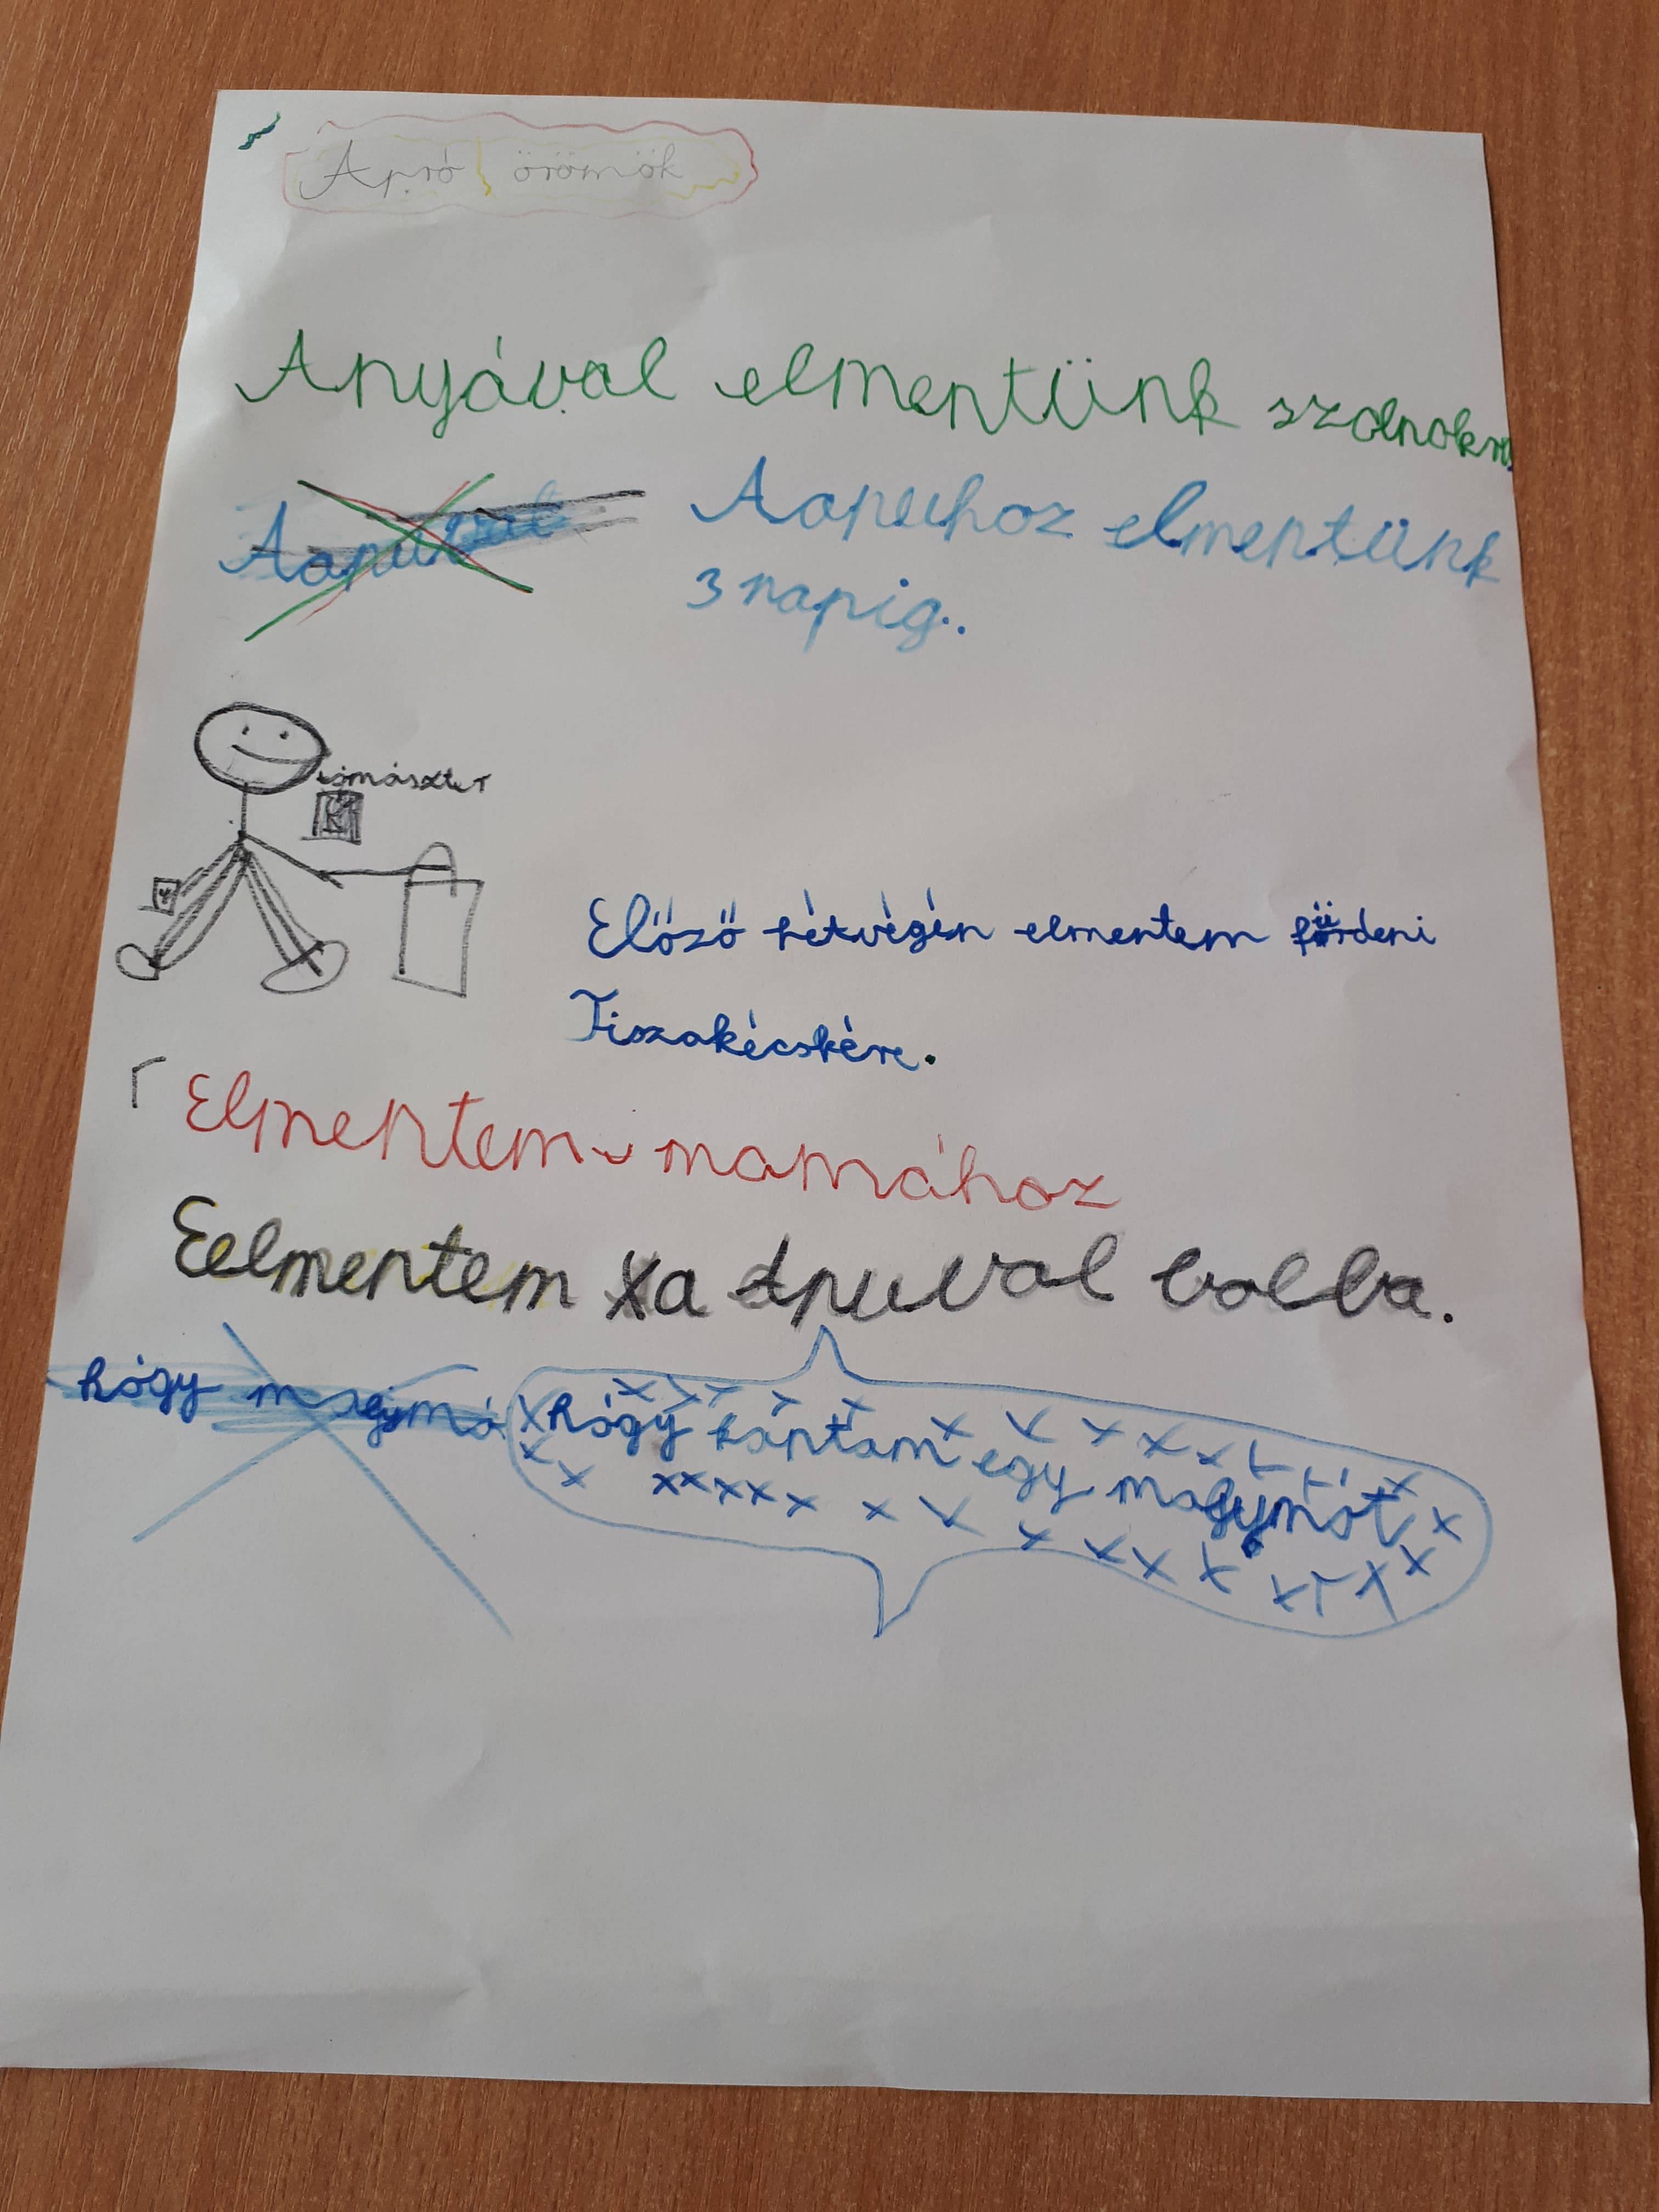 Apró örömök
Anyával elmentünk szolnokra
Aapuhoz elmentünk
3 napig..
Előző hétvégén elmentem fürdeni
Tiszakécskére.
Elmentem mamához
Eelmentem a Apuval bolba.
hógy
hógy kaptam egy magymót